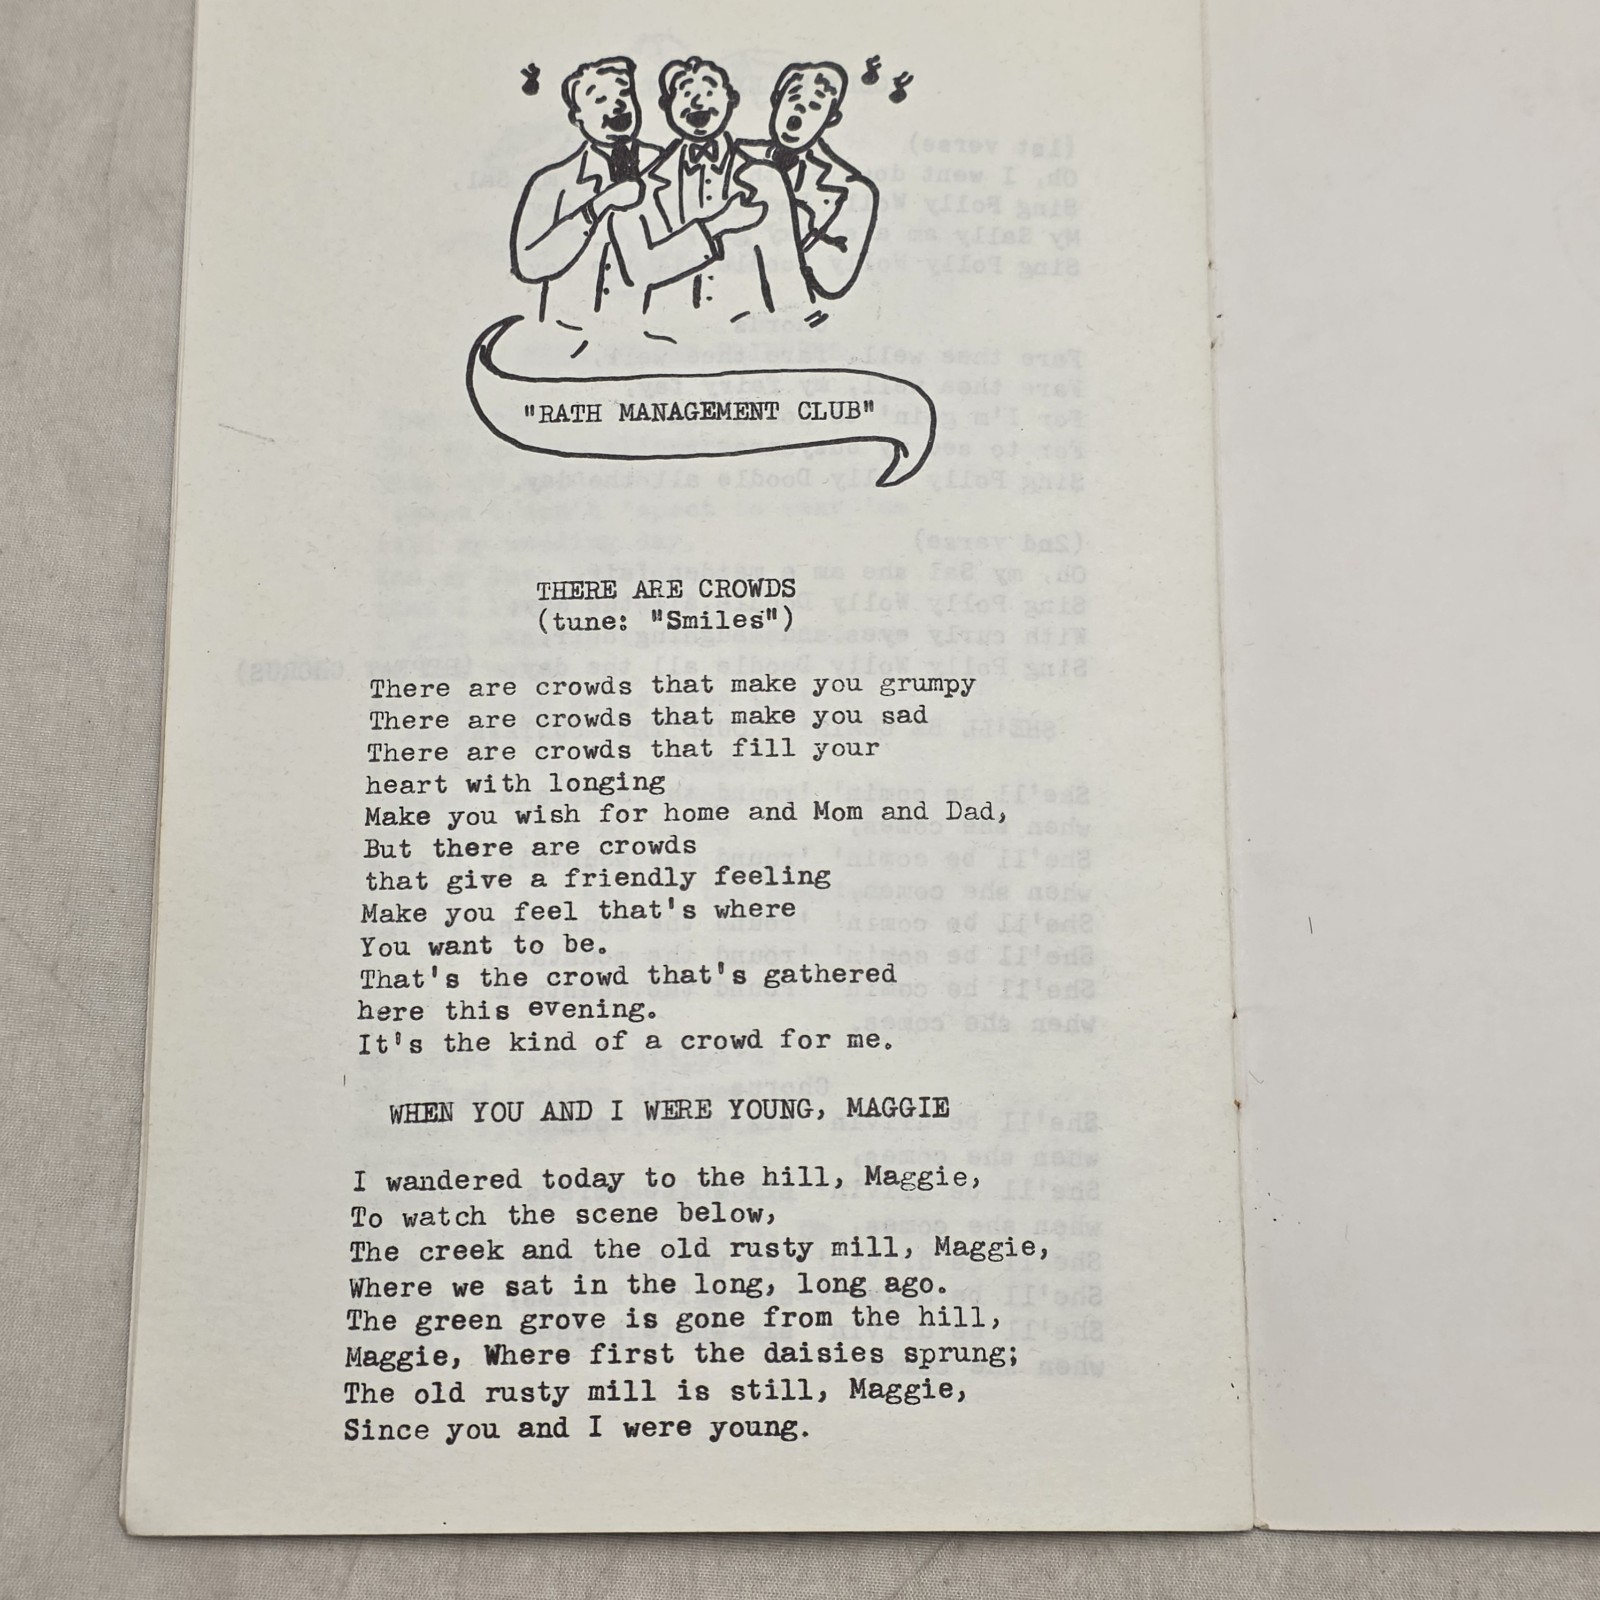 "RATH MANAGEMENT CLUB"
THERE ARE CROWDS
(tune: "Smiles")
There are crowds that make you grumpy
There are crowds that make you sad
There are crowds that fill your
heart with longing
Make you wish for home and Mom and Dad,
But there are crowds
that give a friendly feeling
Make you feel that's where
You want to be.
That's the crowd that's gathered
here this evening.
It's the kind of a crowd for me.
WHEN YOU AND I WERE YOUNG, MAGGIE
I wandered today to the hill, Maggie,
To watch the scene below,
The creek and the old rusty mill, Maggie,
Where we sat in the long, long ago.
The green grove is gone from the hill,
Maggie, Where first the daisies sprung;
The old rusty mill is still, Maggie,
Since you and I were young.